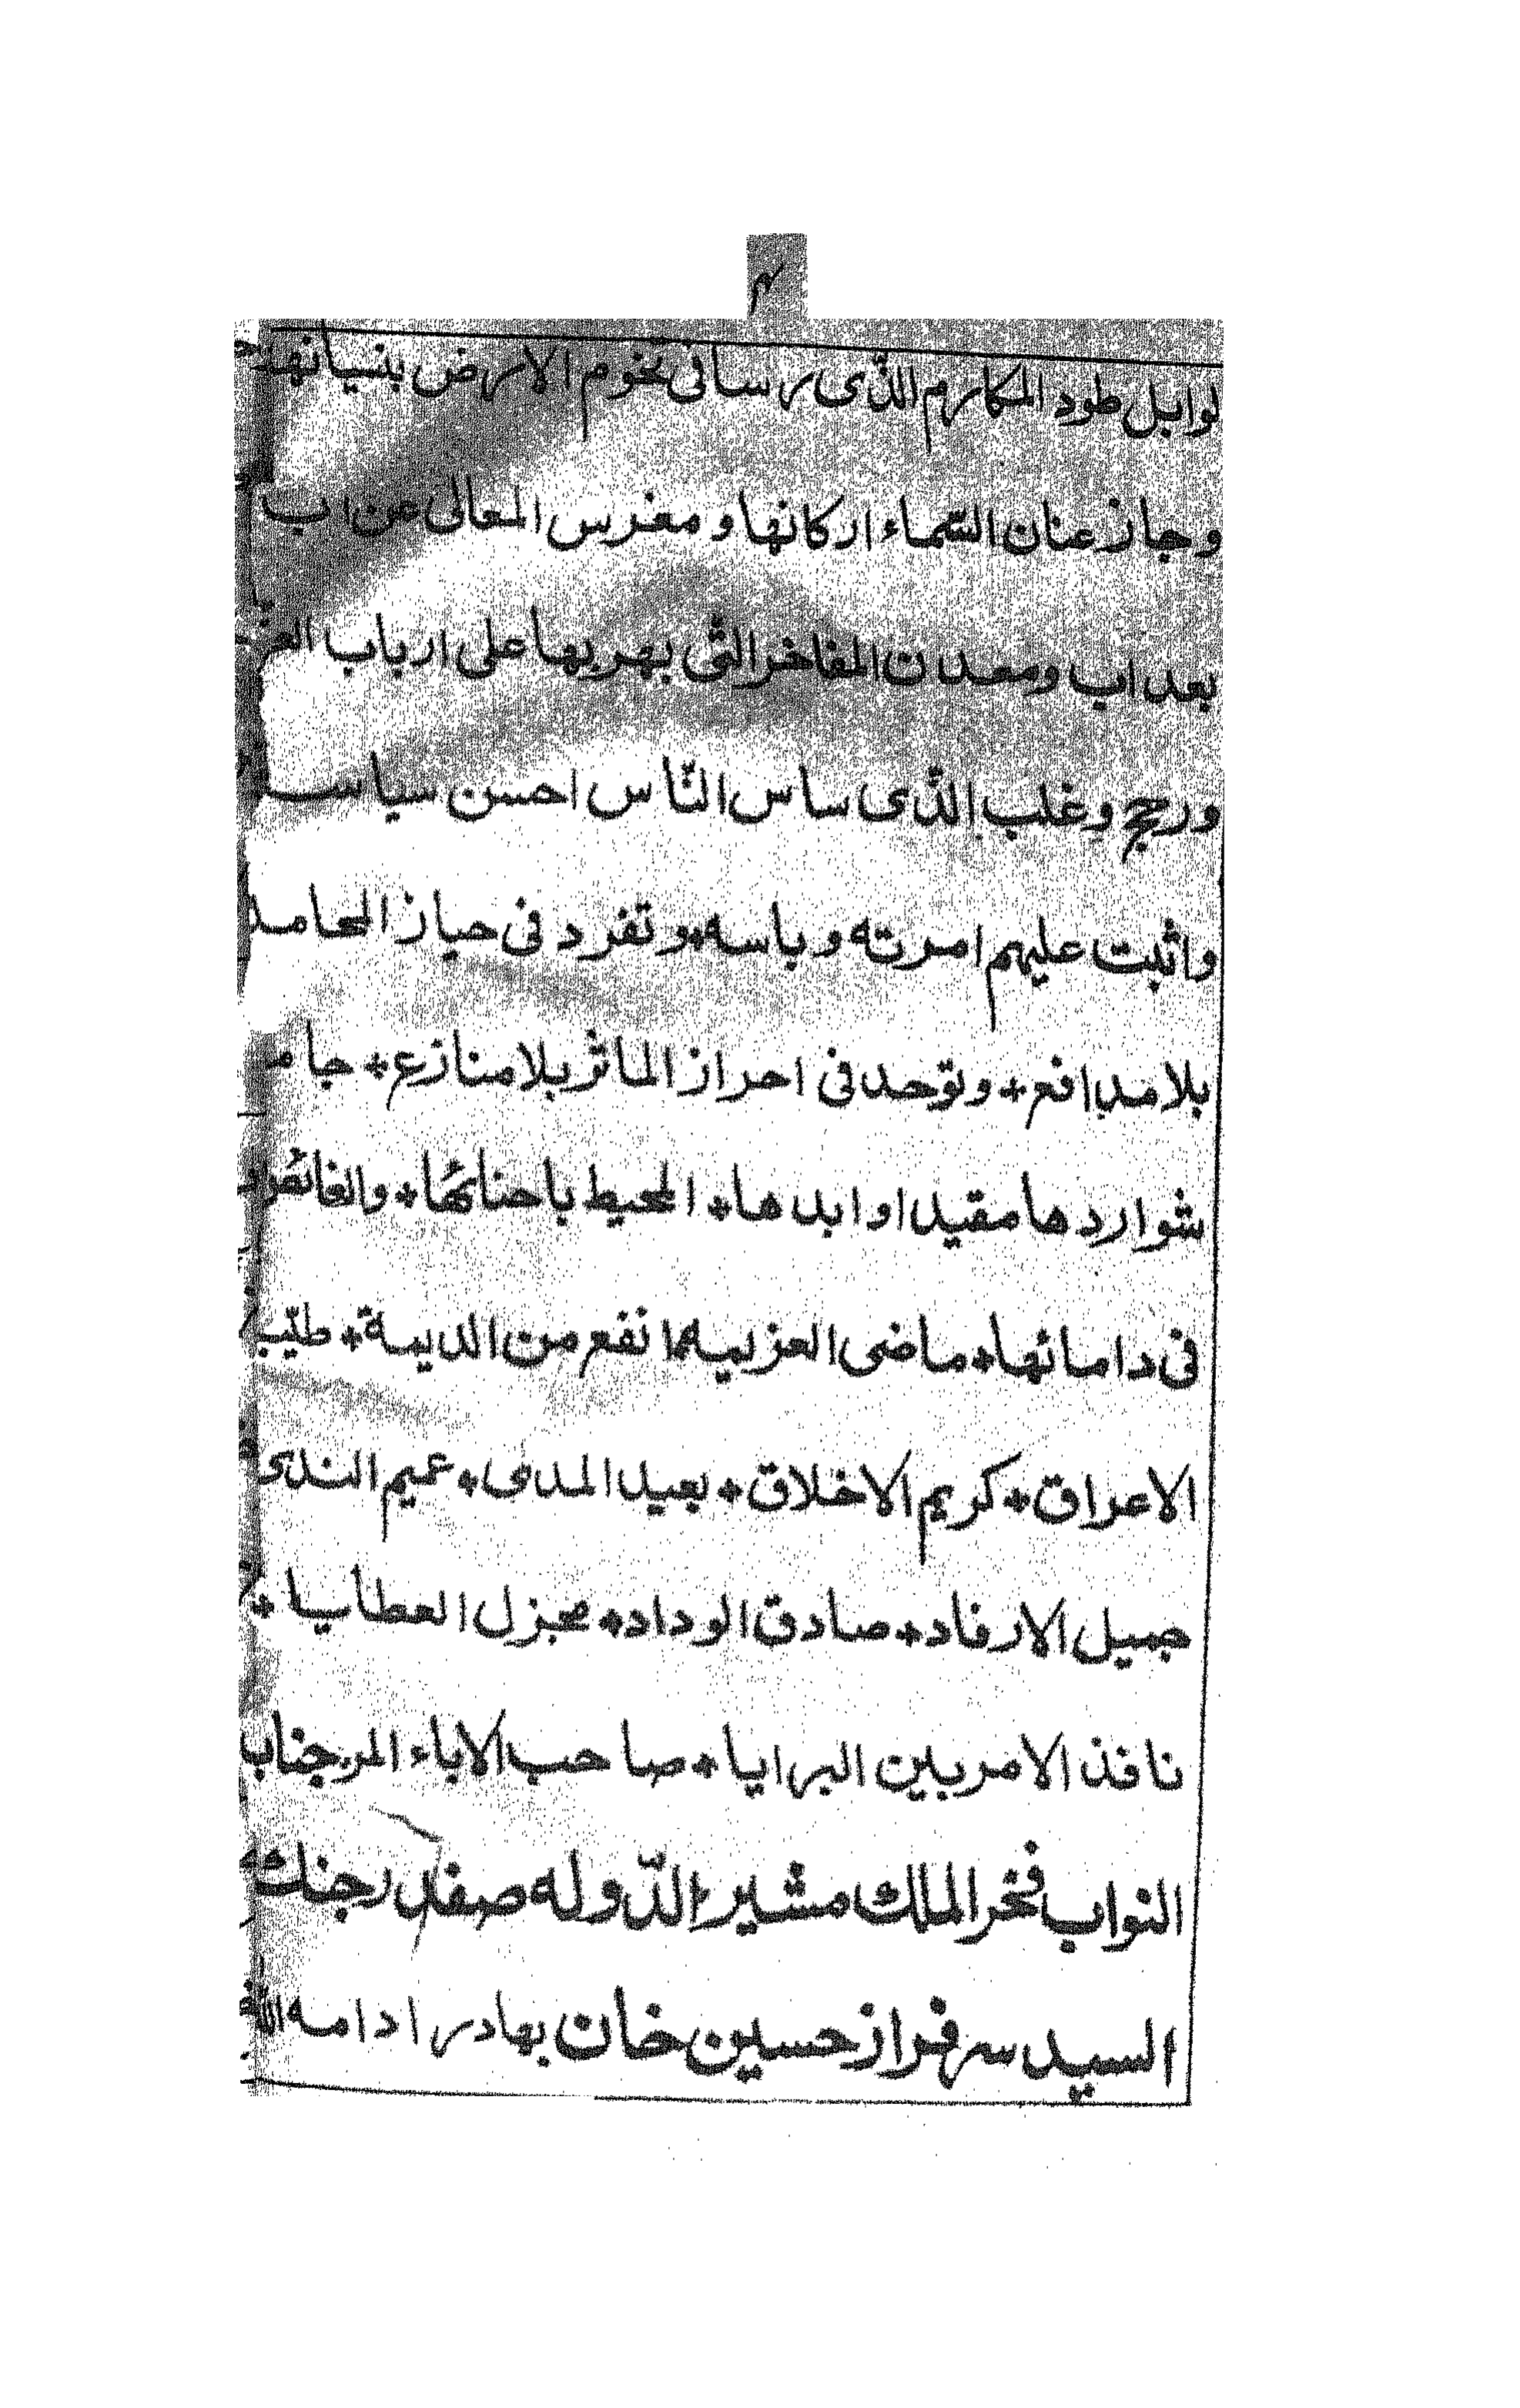 ۴
لوابل طود المكارم الذّى رسافى تخوم الارض بنسيانها
وجاز عنان السّماء اركانها و مغرس المعالى عن اب
بعد اب ومعدن المفاخر التّى بهر بها على ارباب العز
ورجح وغلب الذّى ساس النّاس احسن سياسـ
واثبت عليهم امرته وباسه* وتفرد فى حياز المحامد
بلا مدافع* وتوحد فى احراز الماثر بلا منازع* جامـ
شواردها مقيد اوابدها* المحيط باحنائها* والغائص
فى دامائها* ماضى العزيمه* انفع من الديمة* طيّب
الاعراق* كريم الاخلاق* بعيد المدى* عميم الندى
جميل الارفاد* صادق الوداد* مجزل العطايا*
نافذ الامر بين البرايا* صاحب الاباء المر جناب
النواب فخر الملك مشير الدّوله صفدر جنك
السيد سرفراز حسين خان بهادر ادامه الله